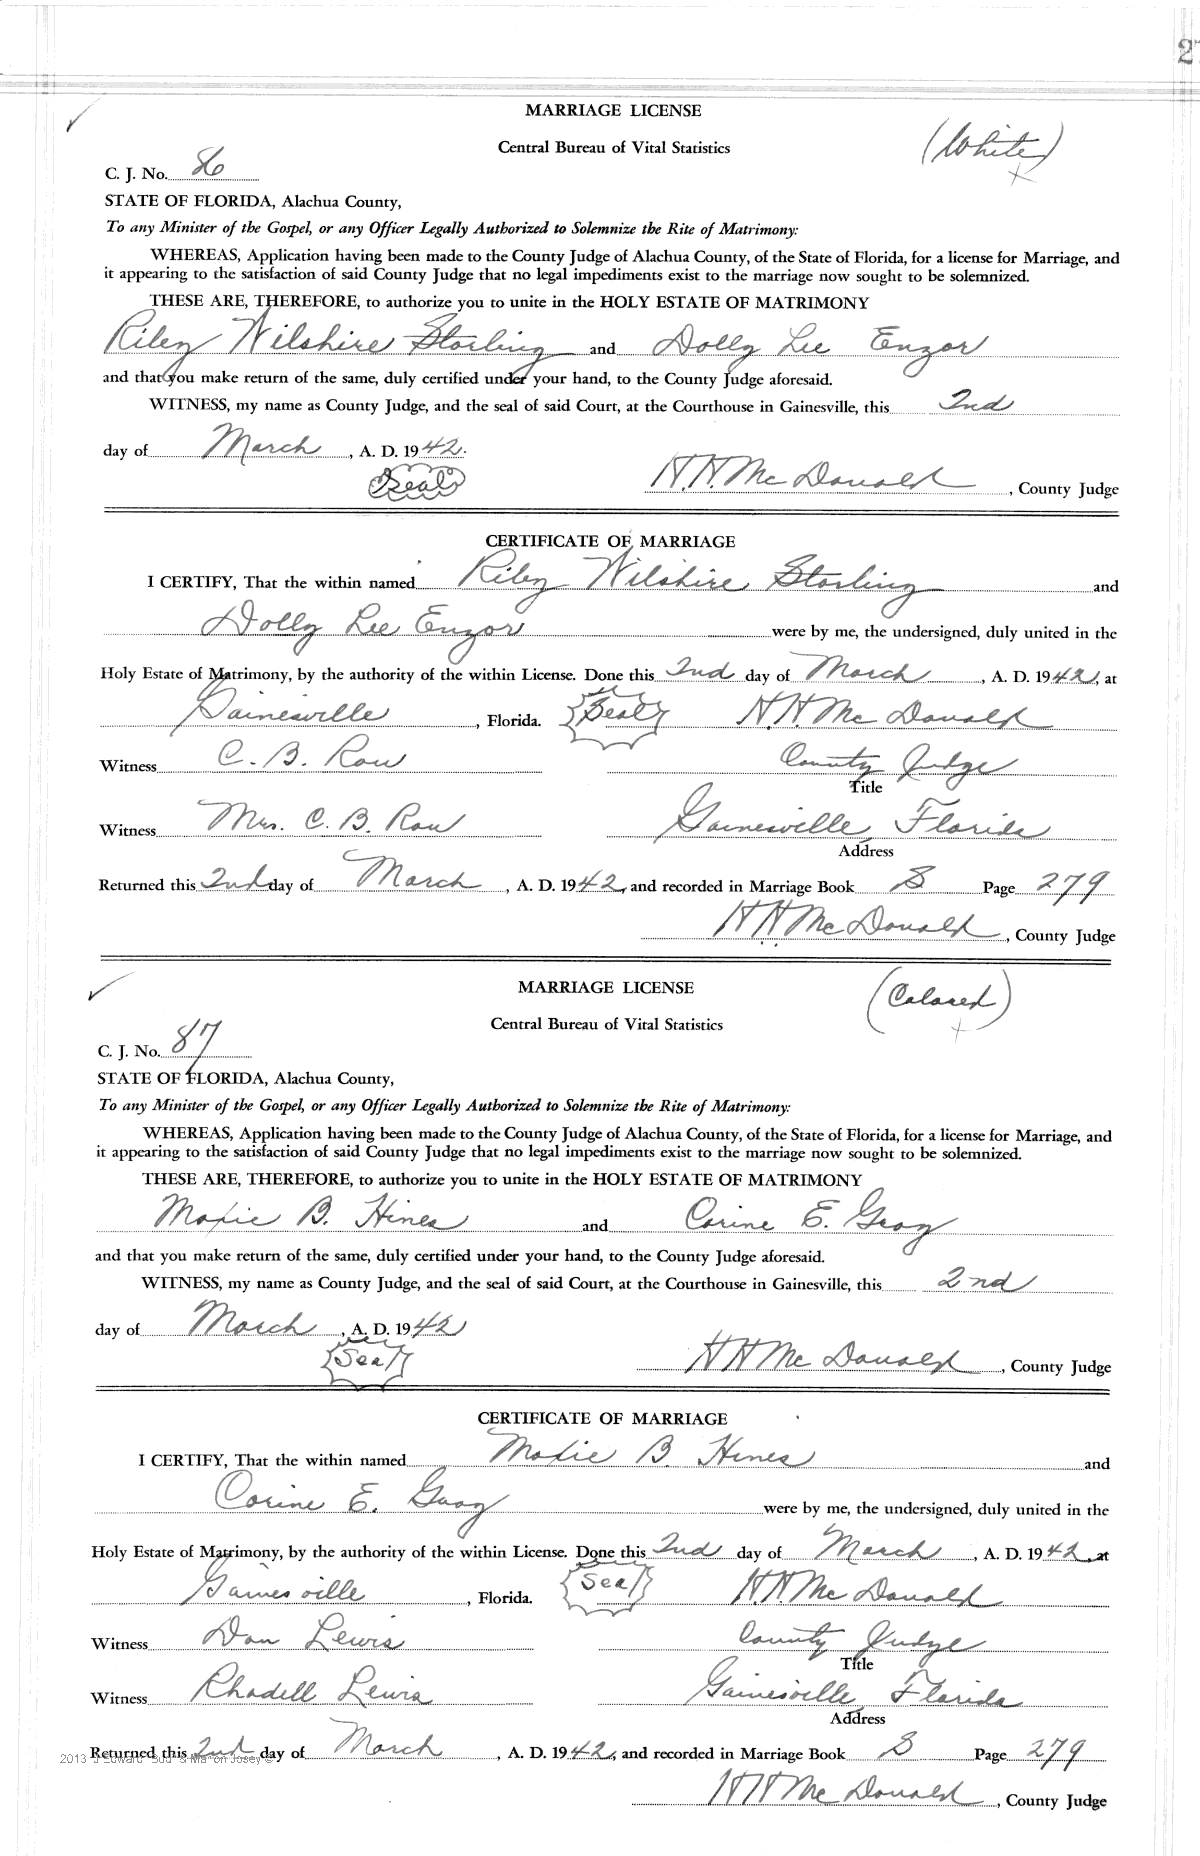 27
MARRIAGE LICENSE
Central Bureau of Vital Statistics
(White)
C. J. No. 86
STATE OF FLORIDA, Alachua County,
To any Minister of the Gospel, or any Officer Legally Authorized to Solemnize the Rite of Matrimony:
WHEREAS, Application having been made to the County Judge of Alachua County, of the State of Florida, for a license for Marriage, and
it appearing to the satisfaction of said County Judge that no legal impediments exist to the marriage now sought to be solemnized.
THESE ARE, THEREFORE, to authorize you to unite in the HOLY ESTATE OF MATRIMONY
Riley Wilshire Storling and Dolly Lee Enzor
and that you make return of the same, duly certified under your hand, to the County Judge aforesaid.
WITNESS, my name as County Judge, and the seal of said Court, at the Courthouse in Gainesville, this 2nd
day of March, A. D. 1942.
(Seal) H. H. McDonald, County Judge
CERTIFICATE OF MARRIAGE
I CERTIFY, That the within named Riley Wilshire Storling and
Dolly Lee Enzor were by me, the undersigned, duly united in the
Holy Estate of Matrimony, by the authority of the within License. Done this 2nd day of March, A. D. 1942, at
Gainesville, Florida. Seal H. H. McDonald
Witness C. B. Row County Judge
Title
Witness Mrs. C. B. Row Gainesville, Florida
Address
Returned this 2nd day of March, A. D. 1942, and recorded in Marriage Book S Page 279
H H McDonald, County Judge
MARRIAGE LICENSE
(Colored)
Central Bureau of Vital Statistics
C. J. No. 87
STATE OF FLORIDA, Alachua County,
To any Minister of the Gospel, or any Officer Legally Authorized to Solemnize the Rite of Matrimony:
WHEREAS, Application having been made to the County Judge of Alachua County, of the State of Florida, for a license for Marriage, and
it appearing to the satisfaction of said County Judge that no legal impediments exist to the marriage now sought to be solemnized.
THESE ARE, THEREFORE, to authorize you to unite in the HOLY ESTATE OF MATRIMONY
Moxie B. Hines and Corine E. Gray
and that you make return of the same, duly certified under your hand, to the County Judge aforesaid.
WITNESS, my name as County Judge, and the seal of said Court, at the Courthouse in Gainesville, this 2nd
day of March, A. D. 1942
Seal H H McDonald, County Judge
CERTIFICATE OF MARRIAGE
I CERTIFY, That the within named Moxie B. Hines and
Corine E. Gray were by me, the undersigned, duly united in the
Holy Estate of Matrimony, by the authority of the within License. Done this 2nd day of March, A. D. 1942, at
Gainesville, Florida. Seal H. H. McDonald
Witness Dan Lewis County Judge
Title
Witness Rhodell Lewis Gainesville, Florida
Address
Returned this 2nd day of March, A. D. 1942, and recorded in Marriage Book S Page 279
2013 J Edward "Bud" & Marion Josey ©
H H McDonald, County Judge